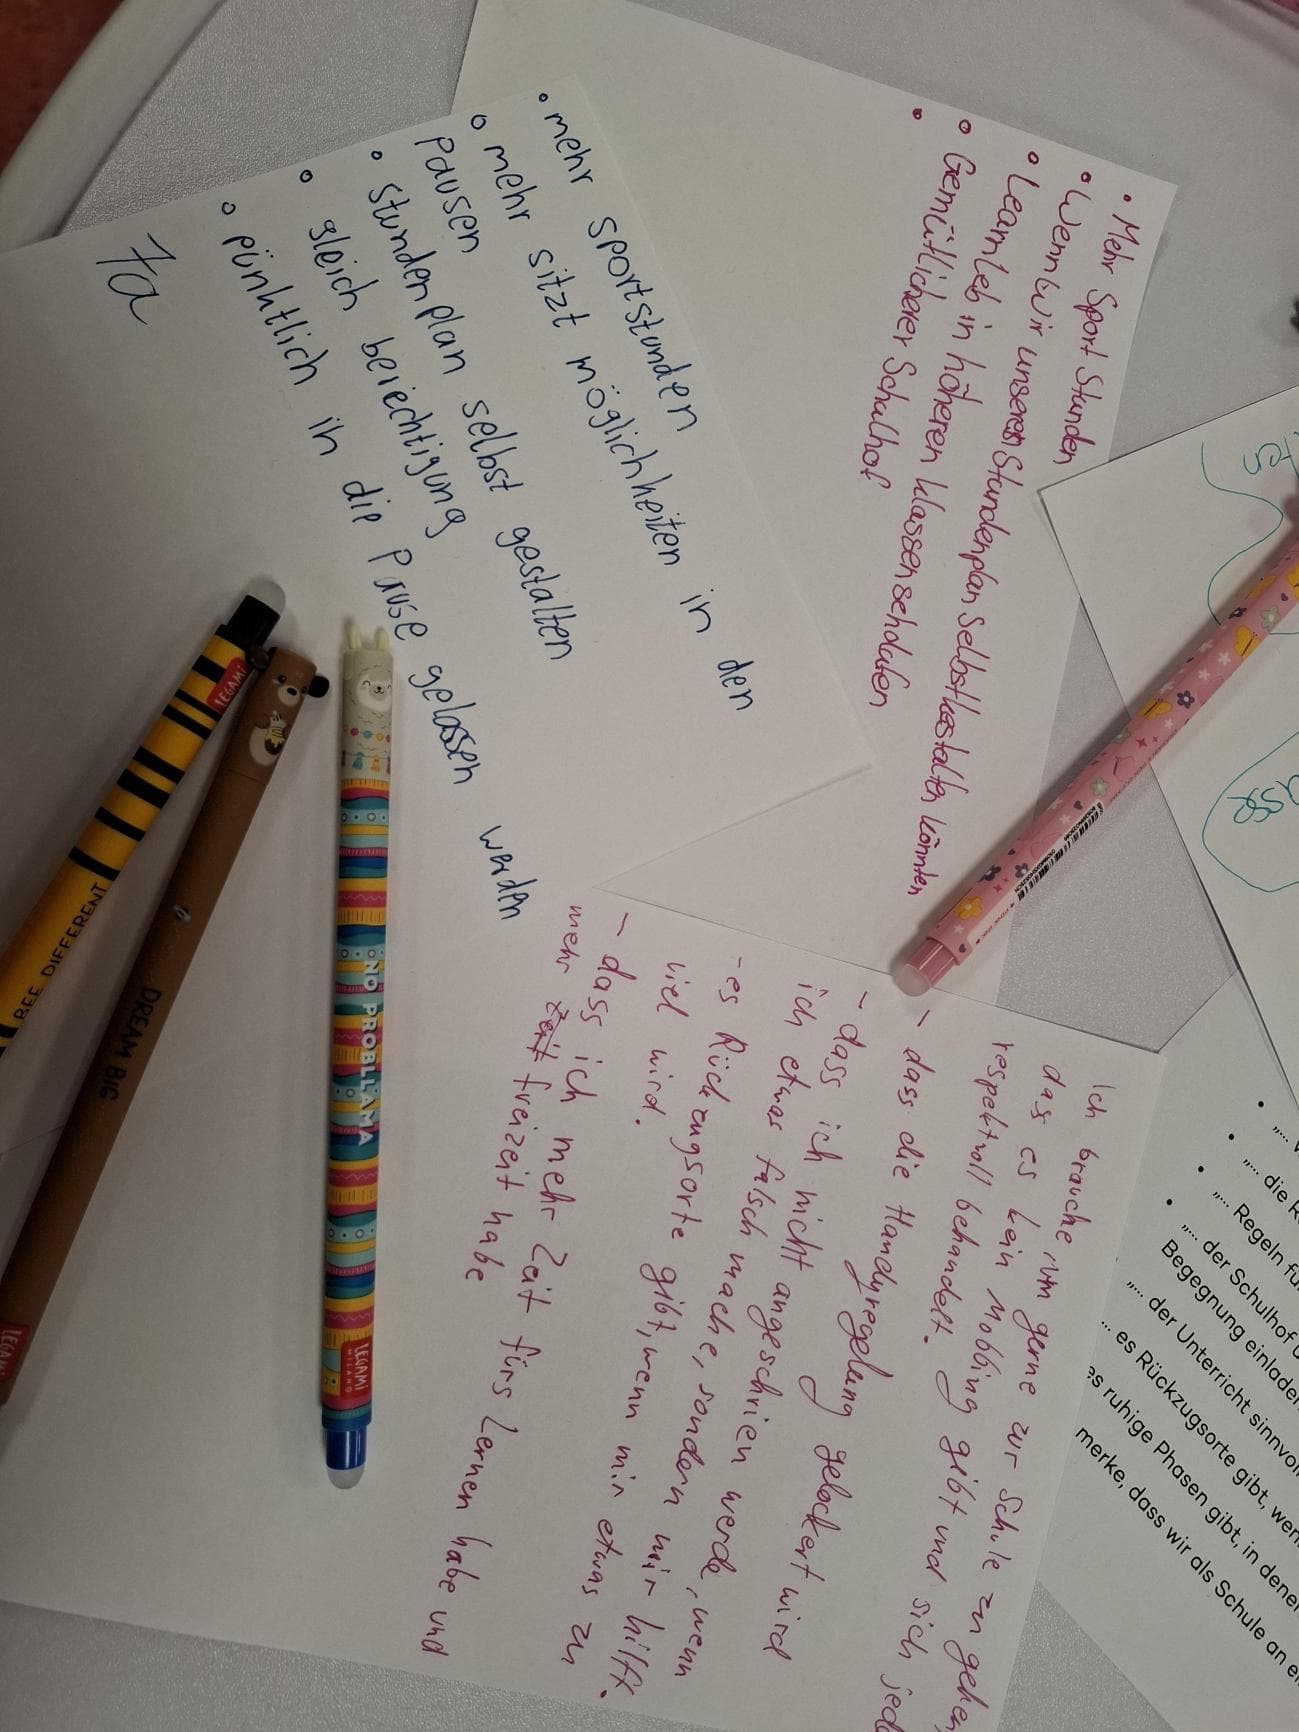 • Mehr Sport Stunden
• Wenn wir unseren Stundenplan selbst kestalten könnten
• Learnleb in höheren klassen schdufen
• Gemütlicherer Schulhof
•
• mehr sportstunden
• mehr sitzt möglichkeiten in den
pausen
• stundenplan selbst gestalten
• gleich beriechtigung
• pünktlich in die Pause gelassen werden
7a
Ich brauche, um gerne zur Schule zu gehen,
das es kein Mobbing gibt und sich jede
respektvoll behandelt.
- dass die Handyregelung gelockert wird
- dass ich nicht angeschrien werde, wenn
ich etwas falsch mache, sondern mir hilft.
- es Rückzugsorte gibt, wenn mir etwas zu
viel wird.
- dass ich mehr Zeit fürs Lernen habe und
mehr zeit freizeit habe
• „...
• „... die R
• „... Regeln fü
• „... der Schulhof
Begegnung einladen
„... der Unterricht sinnvoll
... es Rückzugsorte gibt, wen
es ruhige Phasen gibt, in denen
merke, dass wir als Schule an ei
LEGAMI
BEE DIFFERENT
DREAM BIG
LEGAMI
NO PROBLLAMA
LEGAMI
MILANO